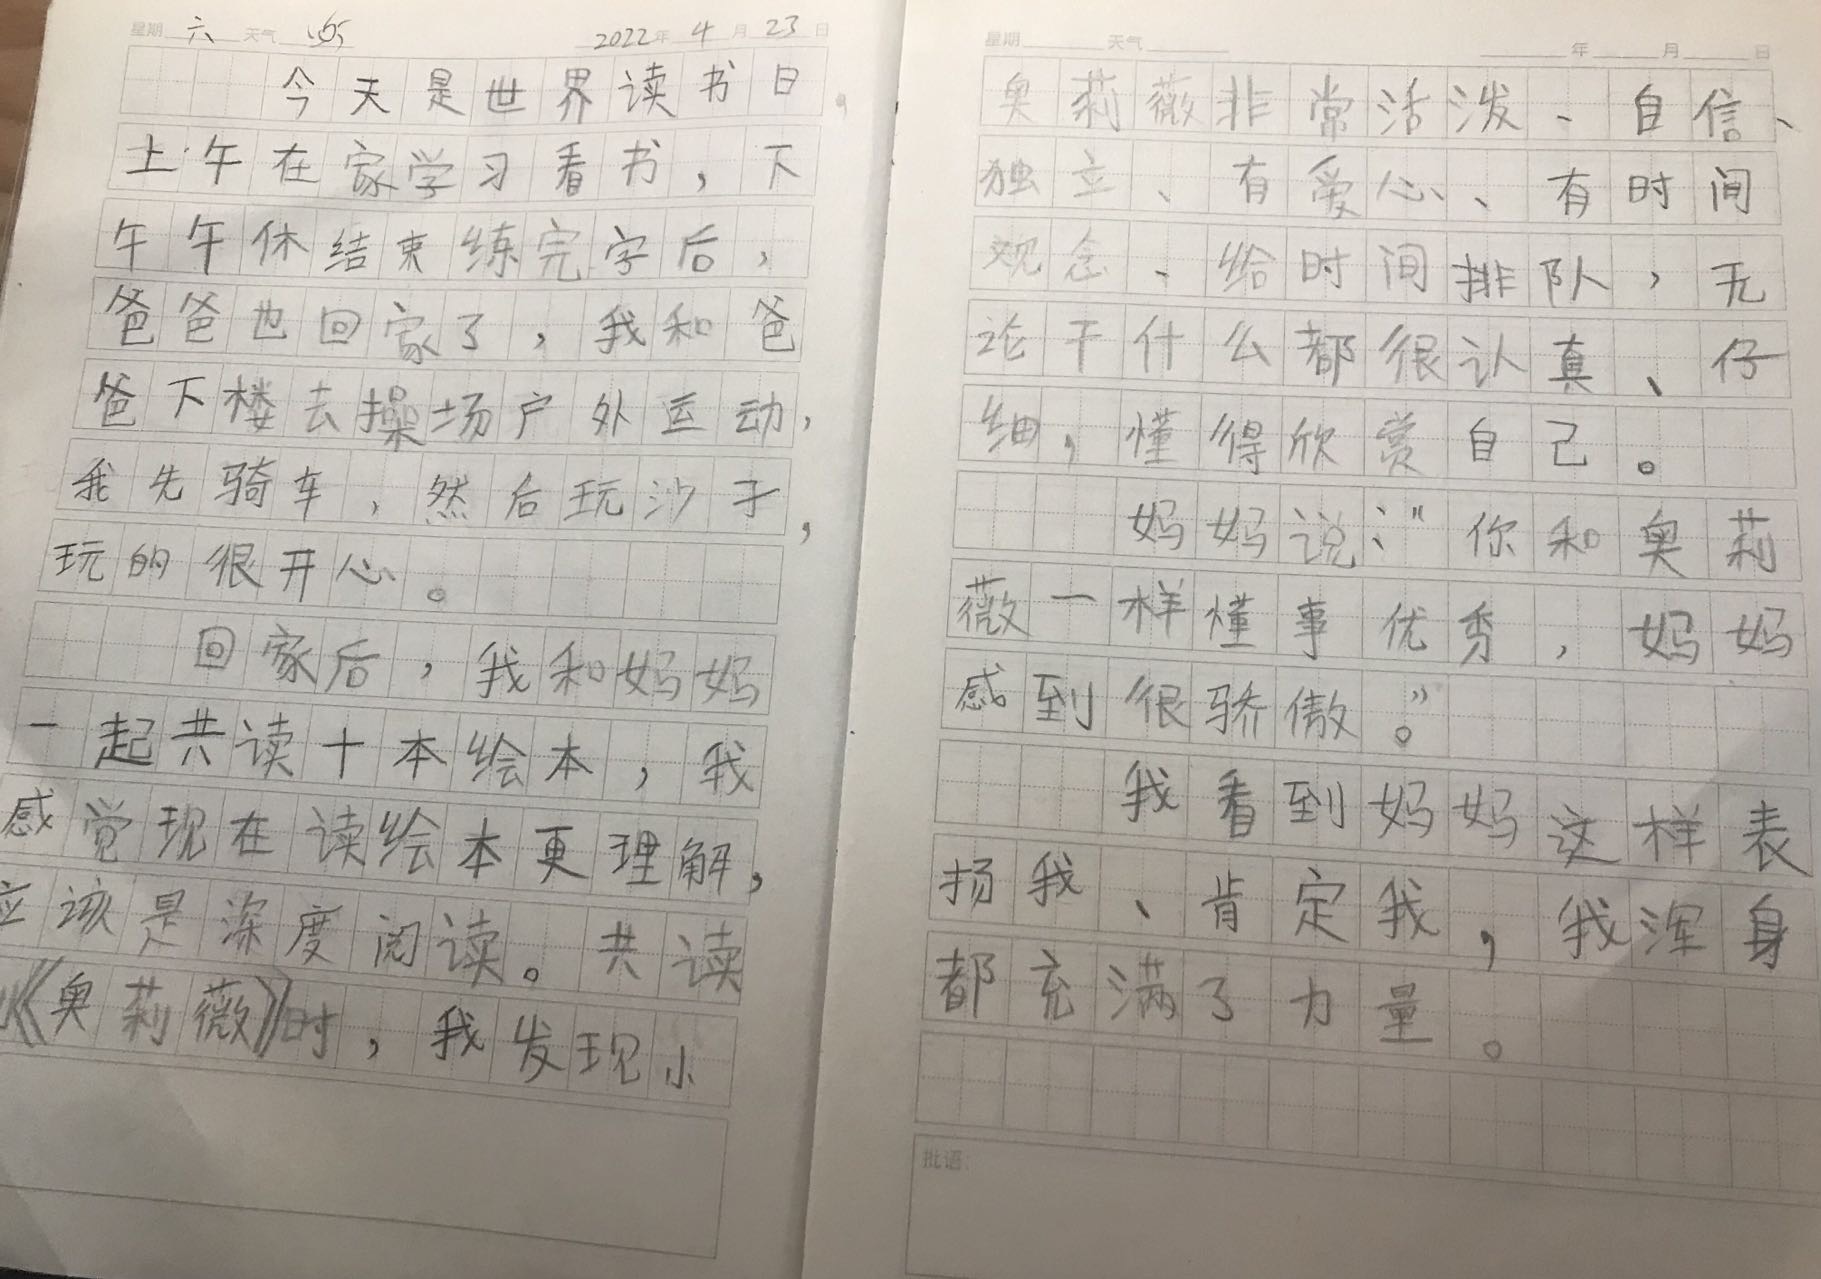 星期 六 天气 晴 2022年 4月 23日
今天是世界读书日，
上午在家学习看书，下
午午休结束练完字后，
爸爸也回家了，我和爸
爸下楼去操场户外运动，
我先骑车，然后玩沙子，
玩的很开心。
回家后，我和妈妈
一起共读十本绘本，我
感觉现在读绘本更理解，
应该是深度阅读。共读
《奥莉薇》时，我发现小
星期 天气 年 月 日
奥莉薇非常活泼、自信、
独立、有爱心、有时间
观念、给时间排队，无
论干什么都很认真、仔
细，懂得欣赏自己。
妈妈说：“你和奥莉
薇一样懂事优秀，妈妈
感到很骄傲。”
我看到妈妈这样表
扬我、肯定我，我浑身
都充满了力量。
批语：